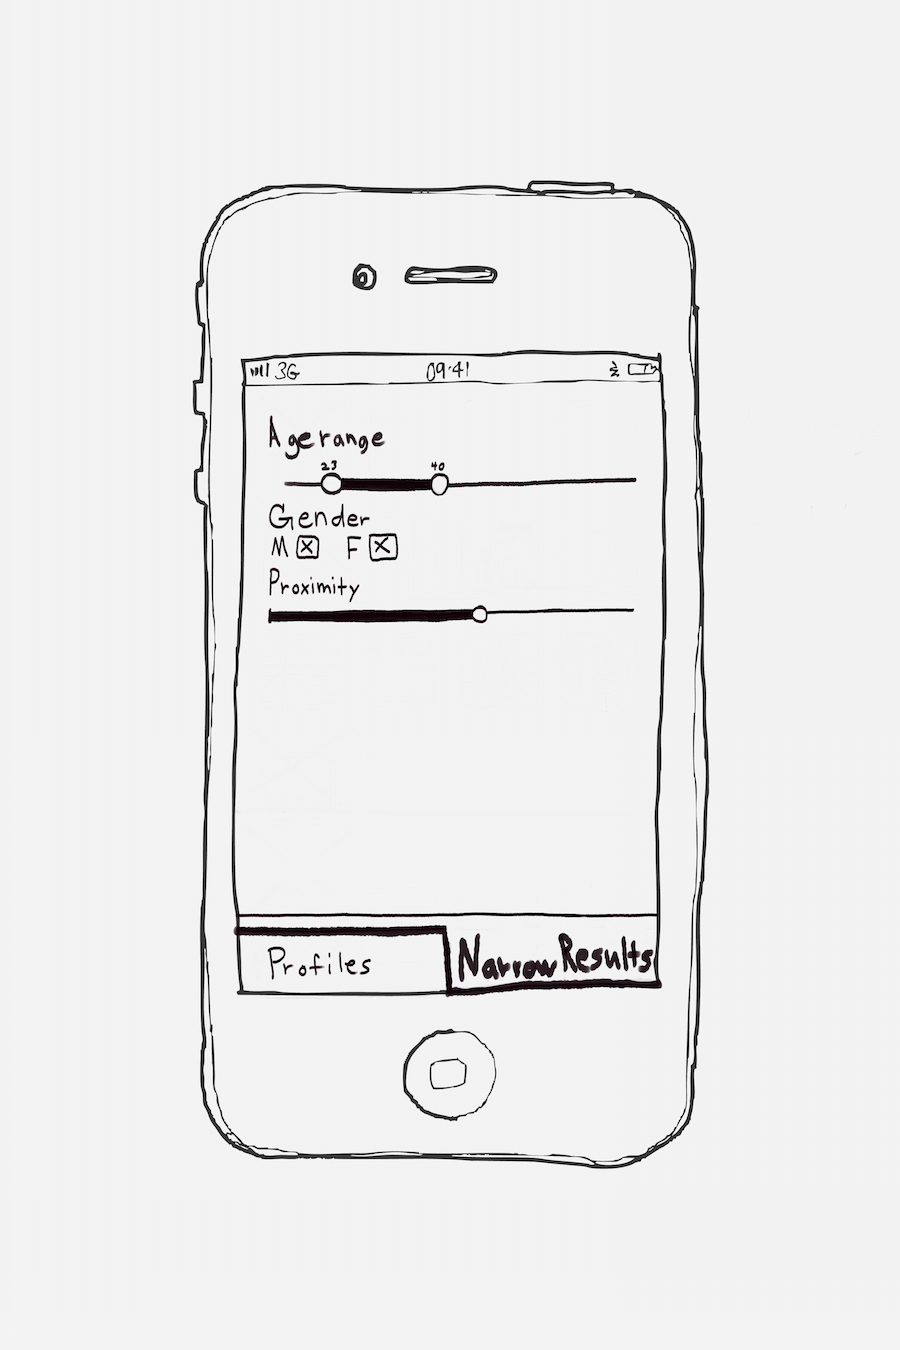 3G 09:41
Age range
23 40
Gender
M F
Proximity
Profiles Narrow Results